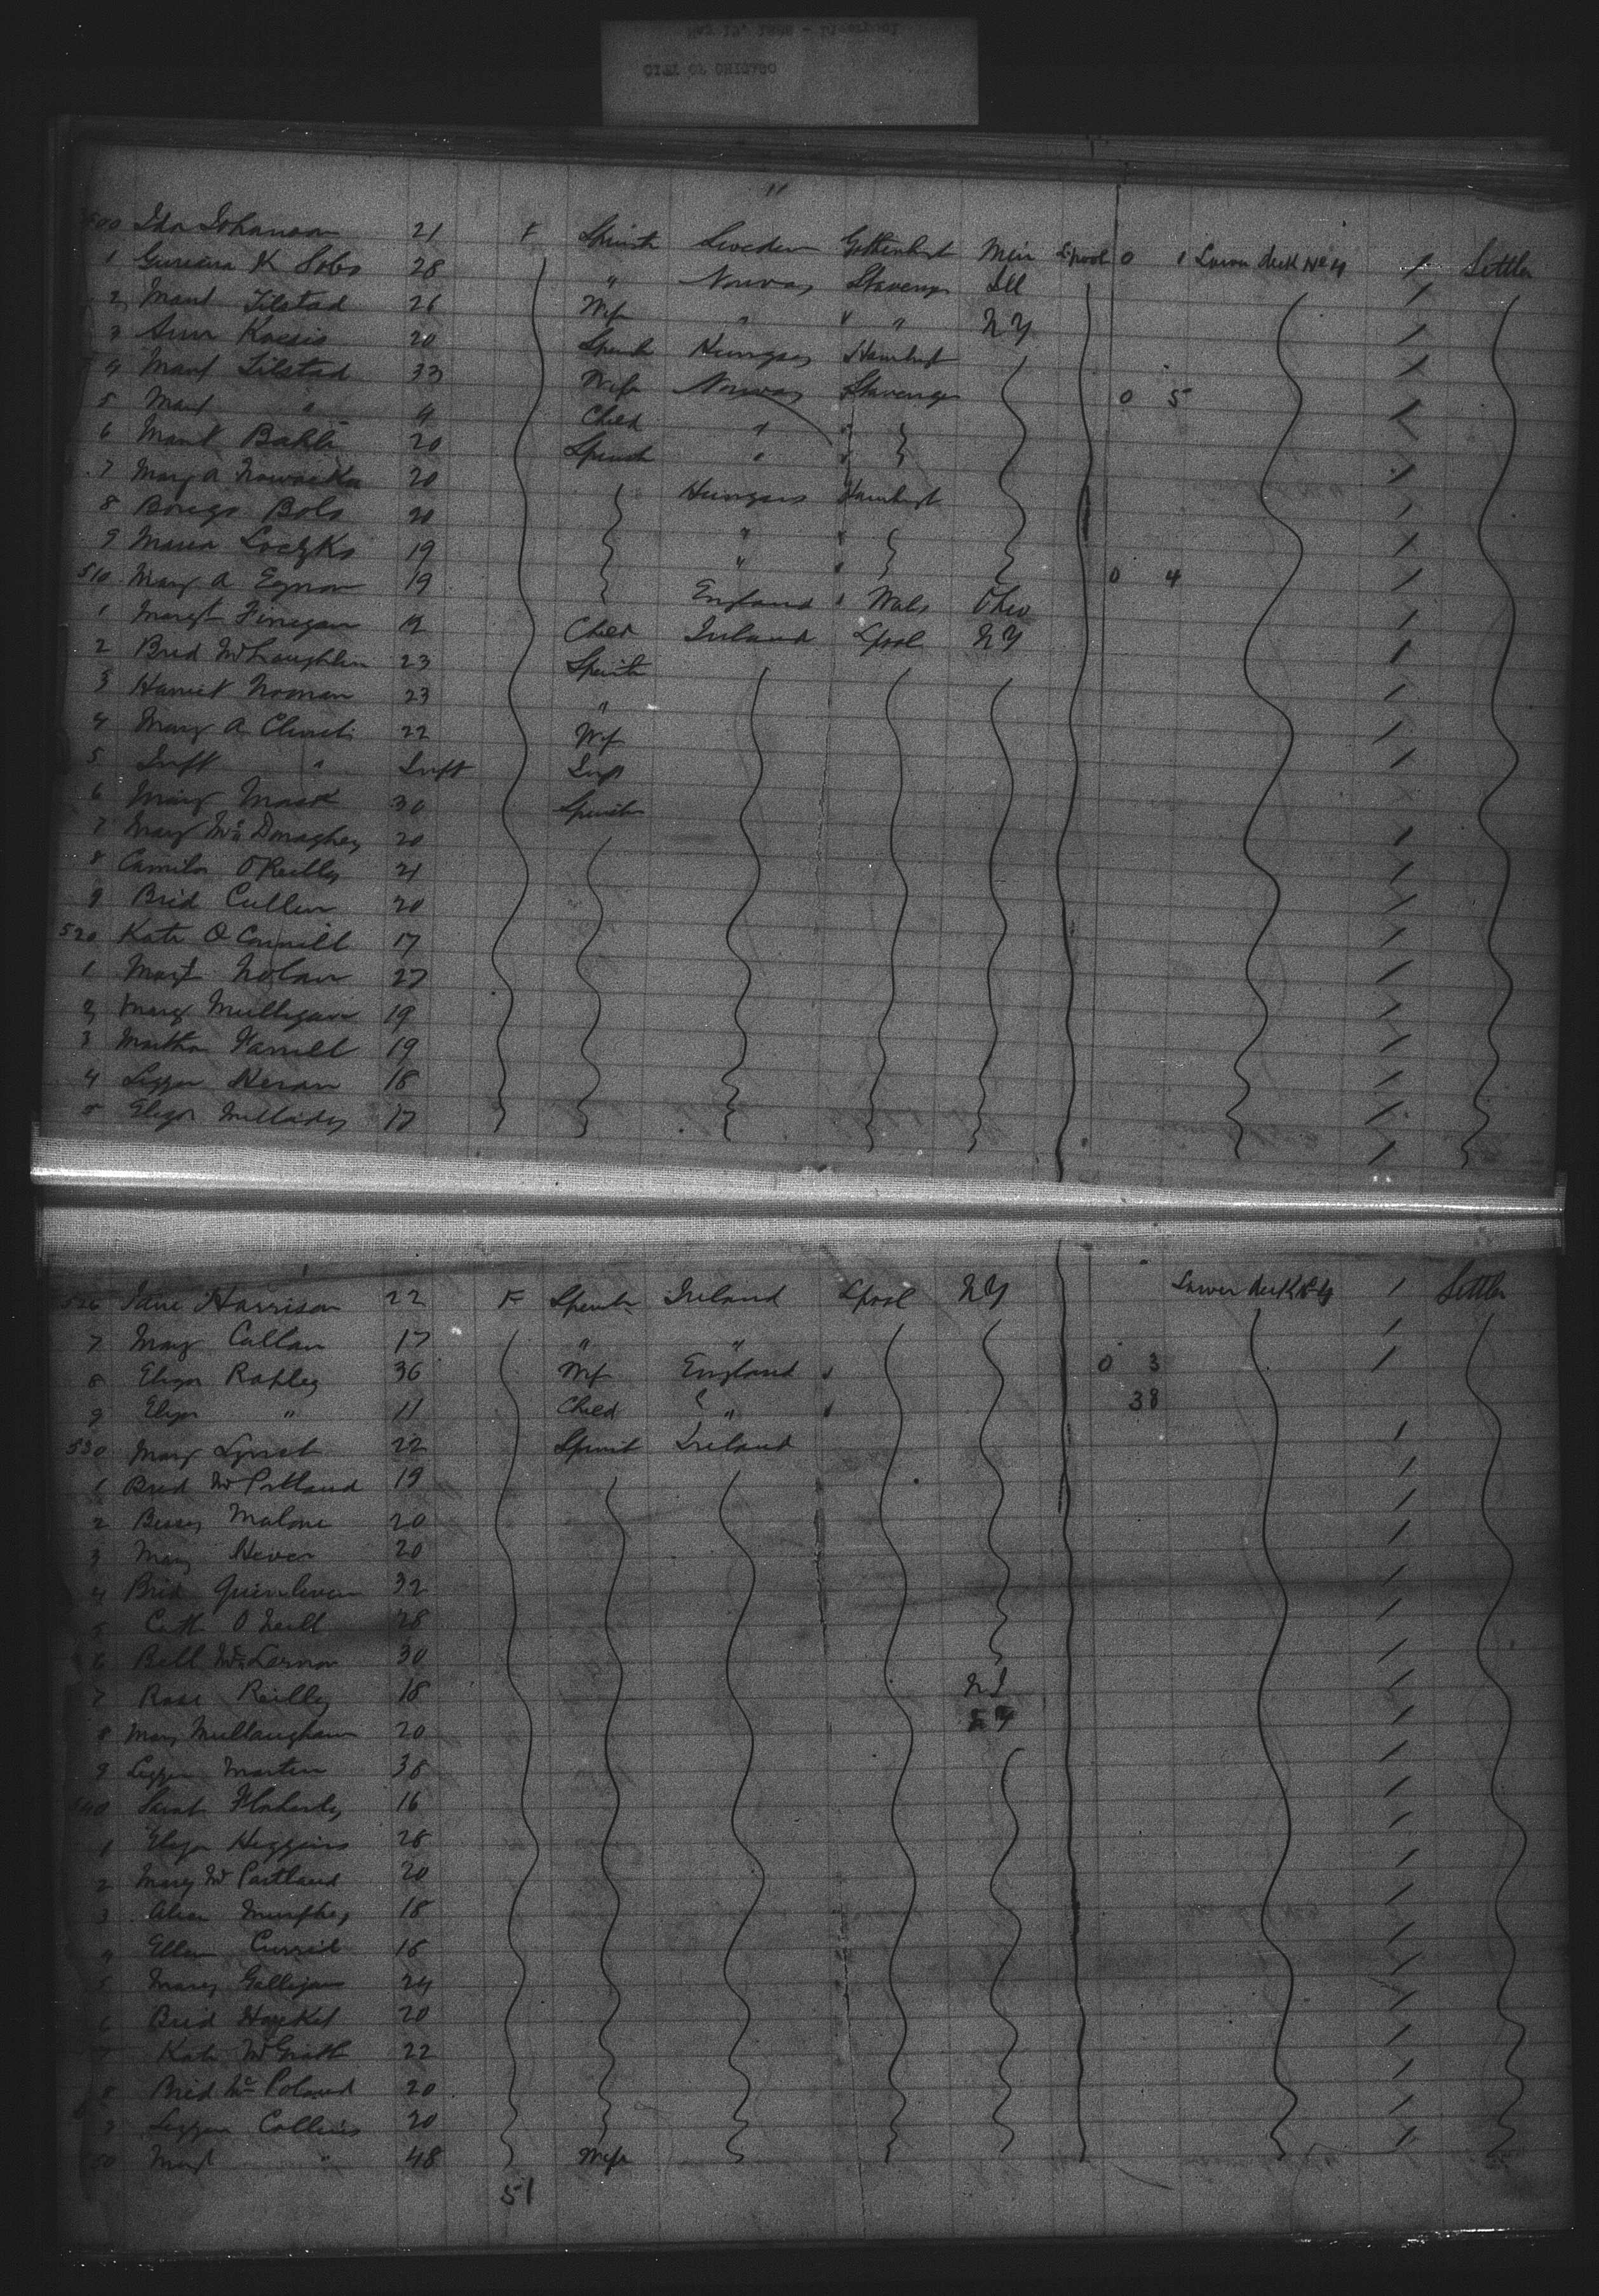 CITY OF CHICAGO
11
500 Ida Johanson 21 F Spinstr Sweden Gottenburg Min L'pool 0 1 Lower deck No 4 1 Settler
1 28 " Norway Stavenger Ill 1
2 Mart Tilstad 26 Wife " " " N Y 1
3 Ann 20 Spinstr Hungary Hamburg 1
4 Mart Tilstad 33 Wife Norway Stavenger 0 5 1
5 Mart " 4 Child " " 1
6 Mant Bakli 20 Spinstr " " 1
7 Mary A Nowacka 20 Hungary Hamburg 1
8 Bolo 20 " " 1
9 Maria Loczko 19 " " 0 4 1
510 Mary A Eynon 19 England " Wales Ohio 1
1 Margt Finegan 12 Child Ireland Lpool N Y 1
2 Brid McLaughlin 23 Spinstr 1
3 Harriet Noonan 23 " 1
4 Mary A Christi 22 Wife 1
5 Inft " Inft Inft
6 Mary Mack 30 Spinstr 1
7 Mary McDonaghey 20 1
8 Camila O'Reilly 21 1
9 Brid Cullen 20 1
520 Kate O'Connell 17 1
1 Mart Nolan 27 1
2 Mary Mulligan 19 1
3 Martha Farrell 19 1
4 Lizzie Keran 18 1
5 Eliza Mulladey 17 1
526 Jane Harrison 22 F Spinstr Ireland Lpool N Y Lower deck No 4 1 Settler
7 Mary Callan 17 " " 1
8 Eliza Rapley 36 Wife England " 0 3 1
9 Eliza " 11 Child " " 38
530 Mary Lynch 22 Spinst Ireland 1
1 Brid McPartland 19 1
2 Bessy Malone 20 1
3 Mary Hever 20 1
4 Brid Quinlivan 32 1
5 Cath O'Neill 28 1
6 Bell McLarnon 30 1
7 Rose Reilly 18 N J 1
8 Mary Mullaughan 20 N Y 1
9 Lizzie Martin 38 1
540 Sarah Flaherty 16 1
1 Eliza Higgins 28 1
2 Mary McPartland 20 1
3 Alice Murphy 18 1
4 Ellen Currid 18 1
5 Mary Galligan 24 1
6 Brid Hacket 20 1
7 Kate McGrath 22 1
8 Brid McPoland 20 1
9 Lizzie Collins 20 1
50 Mart " 48 Wife
51